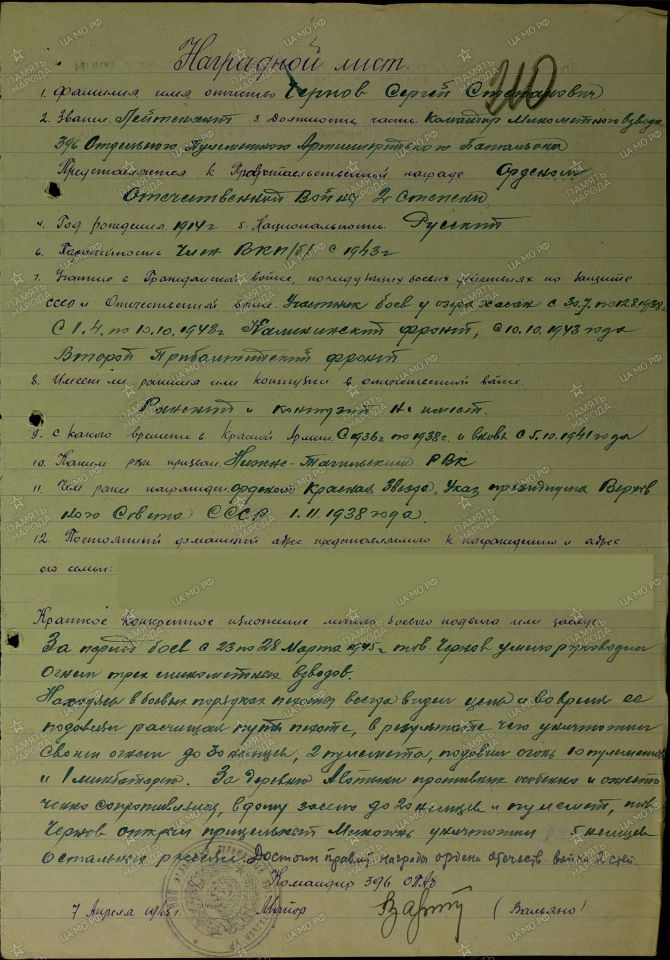 Наградной лист.
210
1. Фамилия имя отчество Чернов Сергей Степанович
2. Звание Лейтенант 3. Должность, часть Командир Минометного взвода
396 Отдельного Пулеметного Артиллерийского Батальона
Представляется к Правительственной награде Орденом
Отечественный Войны 2 степени
4. Год рождения 1914г 5. Национальность Русский
6. Партийность Член ВКП/б/ с 1943г
7. Участие в Гражданской войне, последующих боевых действиях по защите
СССР и Отечественной войне. Участник боев у озера Хасан с 30.7. по 12.8.1938г
С 1.4. по 10.10.1943г Калининский фронт, с 10.10.1943 года
Второй Прибалтийский фронт
8. Имеет ли ранения или контузии в отечественной войне.
Ранений и контузий не имеет.
9. С какого времени в Красной Армии. С 1936г по 1938г. и вновь с 5.10.1941 года
10. Каким РВК призван. Нижне-Тагильский РВК
11. Чем ранее награжден. орденом Красная Звезда, Указ президиума Верхов
ного Совета СССР 1.11.1938 года.
12. Постоянный домашний адрес представляемого к награждению и адрес
его семьи:
Краткое конкретное изложение личного боевого подвига или заслуг.
За период боев с 23 по 28 Марта 1945г тов. Чернов умело руководил
огнем трех минометных взводов.
Находясь в боевых порядках пехоты всегда видел цель и во время ее
подавлял расчищал путь пехоте, в результате чего уничтожил
своим огнем до 30 немцев, 2 пулемета, подавил огонь 10 пулеметов
и 1 минбатарею. За деревню противник особенно и ожесто
ченно сопротивлялся, в дому засело до 20 немцев и пулемет, тов.
Чернов открыл прицельный уничтожил 5 немцев
остальных рассеял. Достоин правит. награды ордена отечеств. война II степ.
Командир 396 ОПАБ
7 Апреля 1945г. Майор (Вальяно)
ПАМЯТЬ НАРОДА
ЦА МО РФ